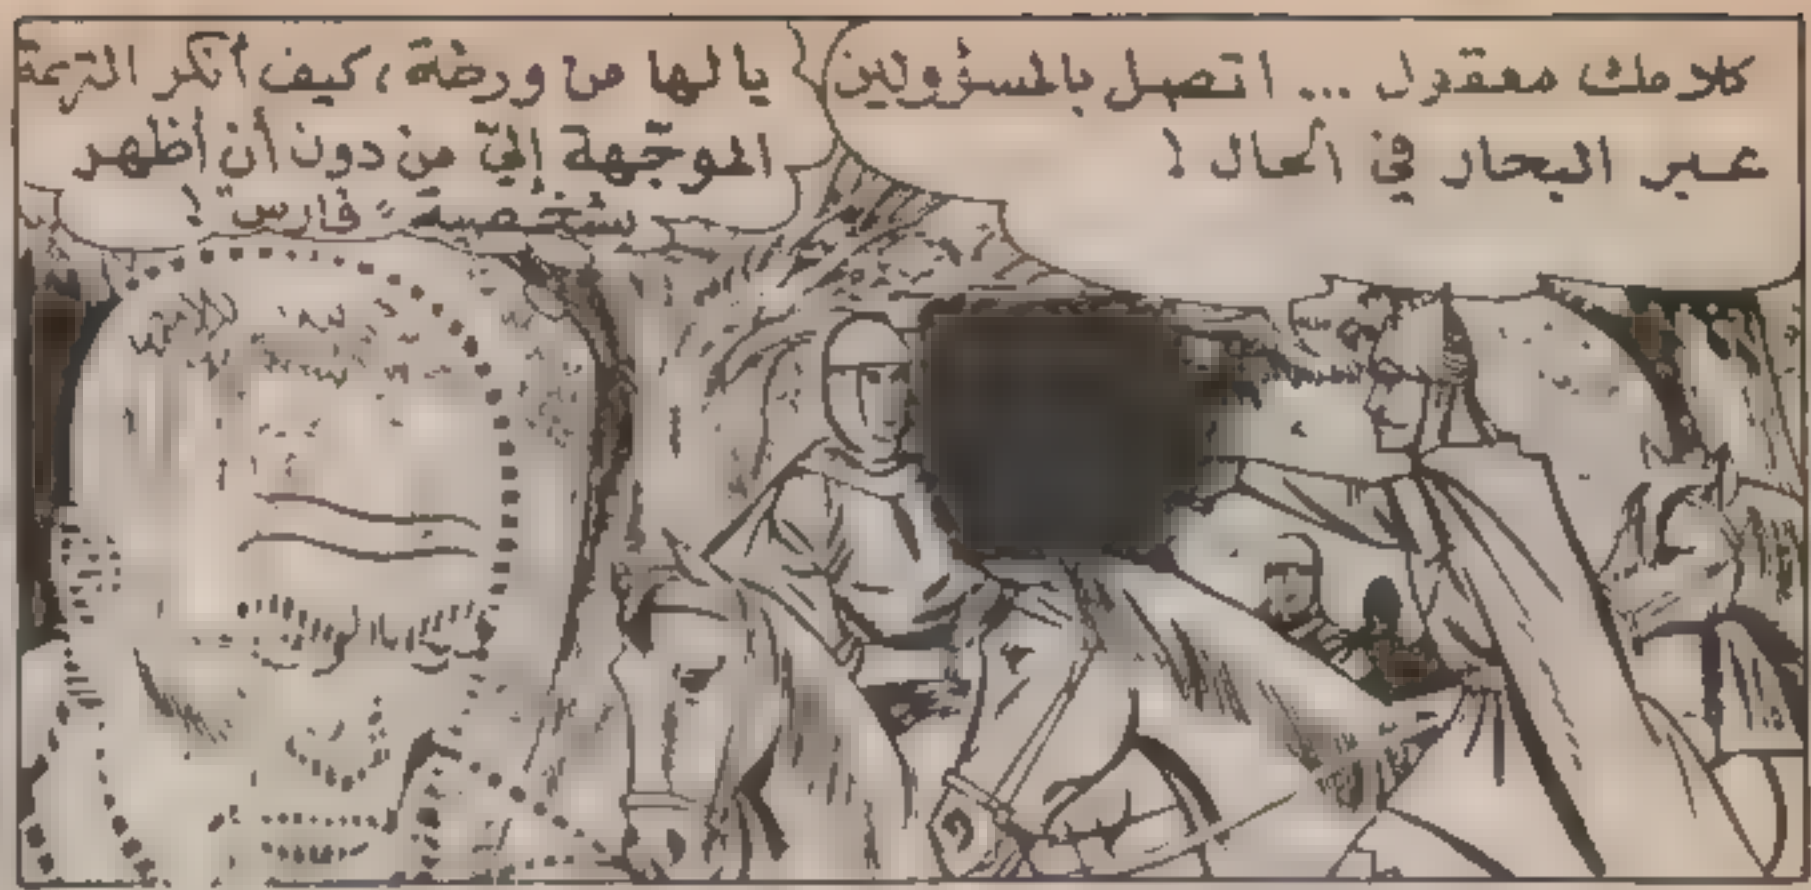 كلامك معقول ... اتصل بالمسؤولين
عبر البحار في الحال !
يا لها من ورطة ، كيف أنكر التهمة
الموجّهة إليّ من دون أن أظهر
شخصية " فارس " !